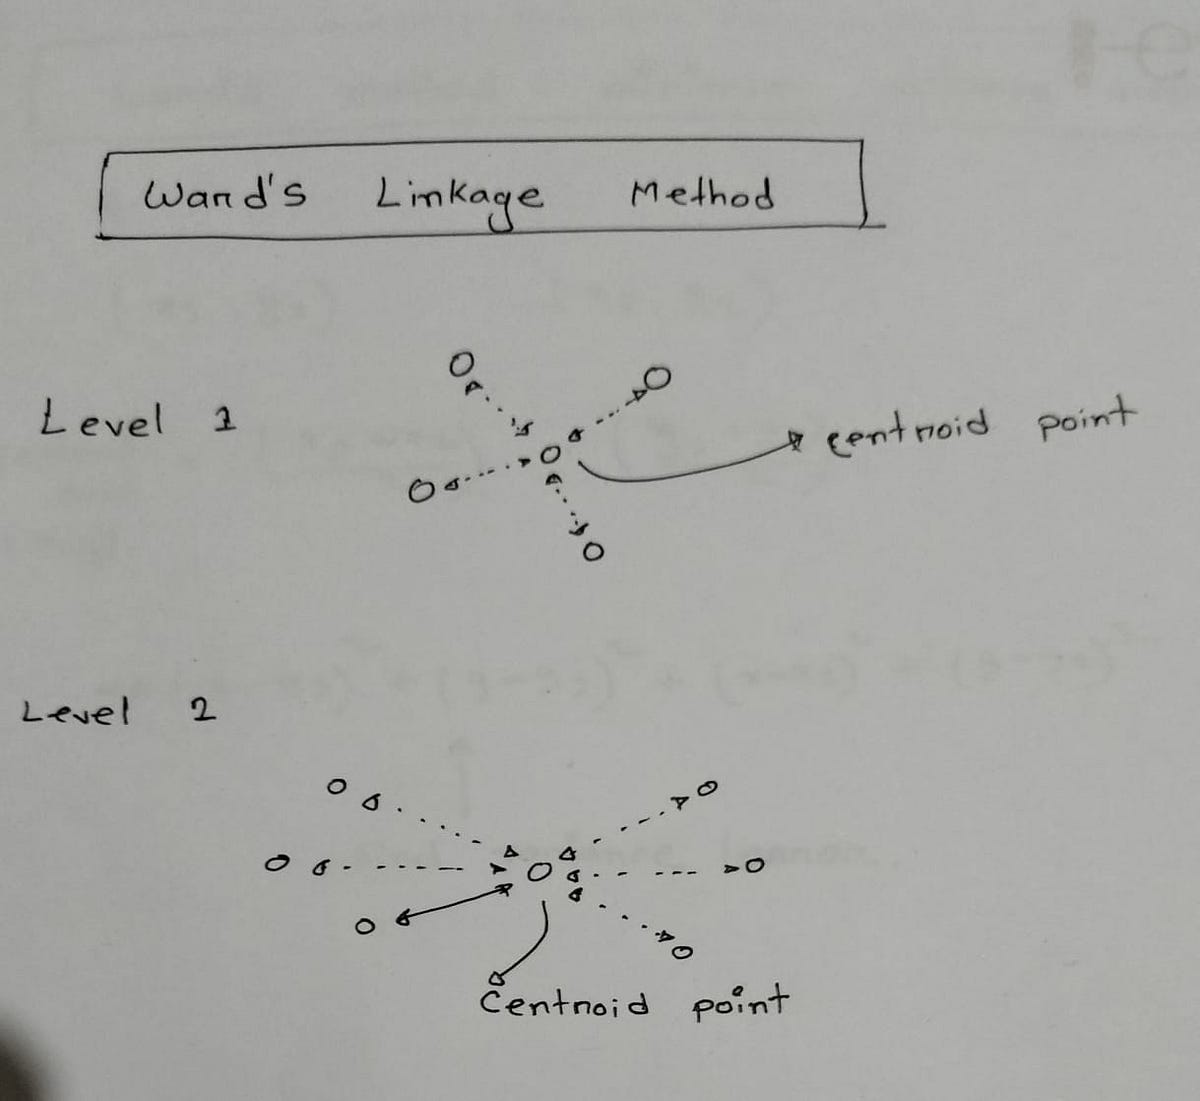 Ward's Linkage Method
Level 1
centroid point
Level 2
Centroid point